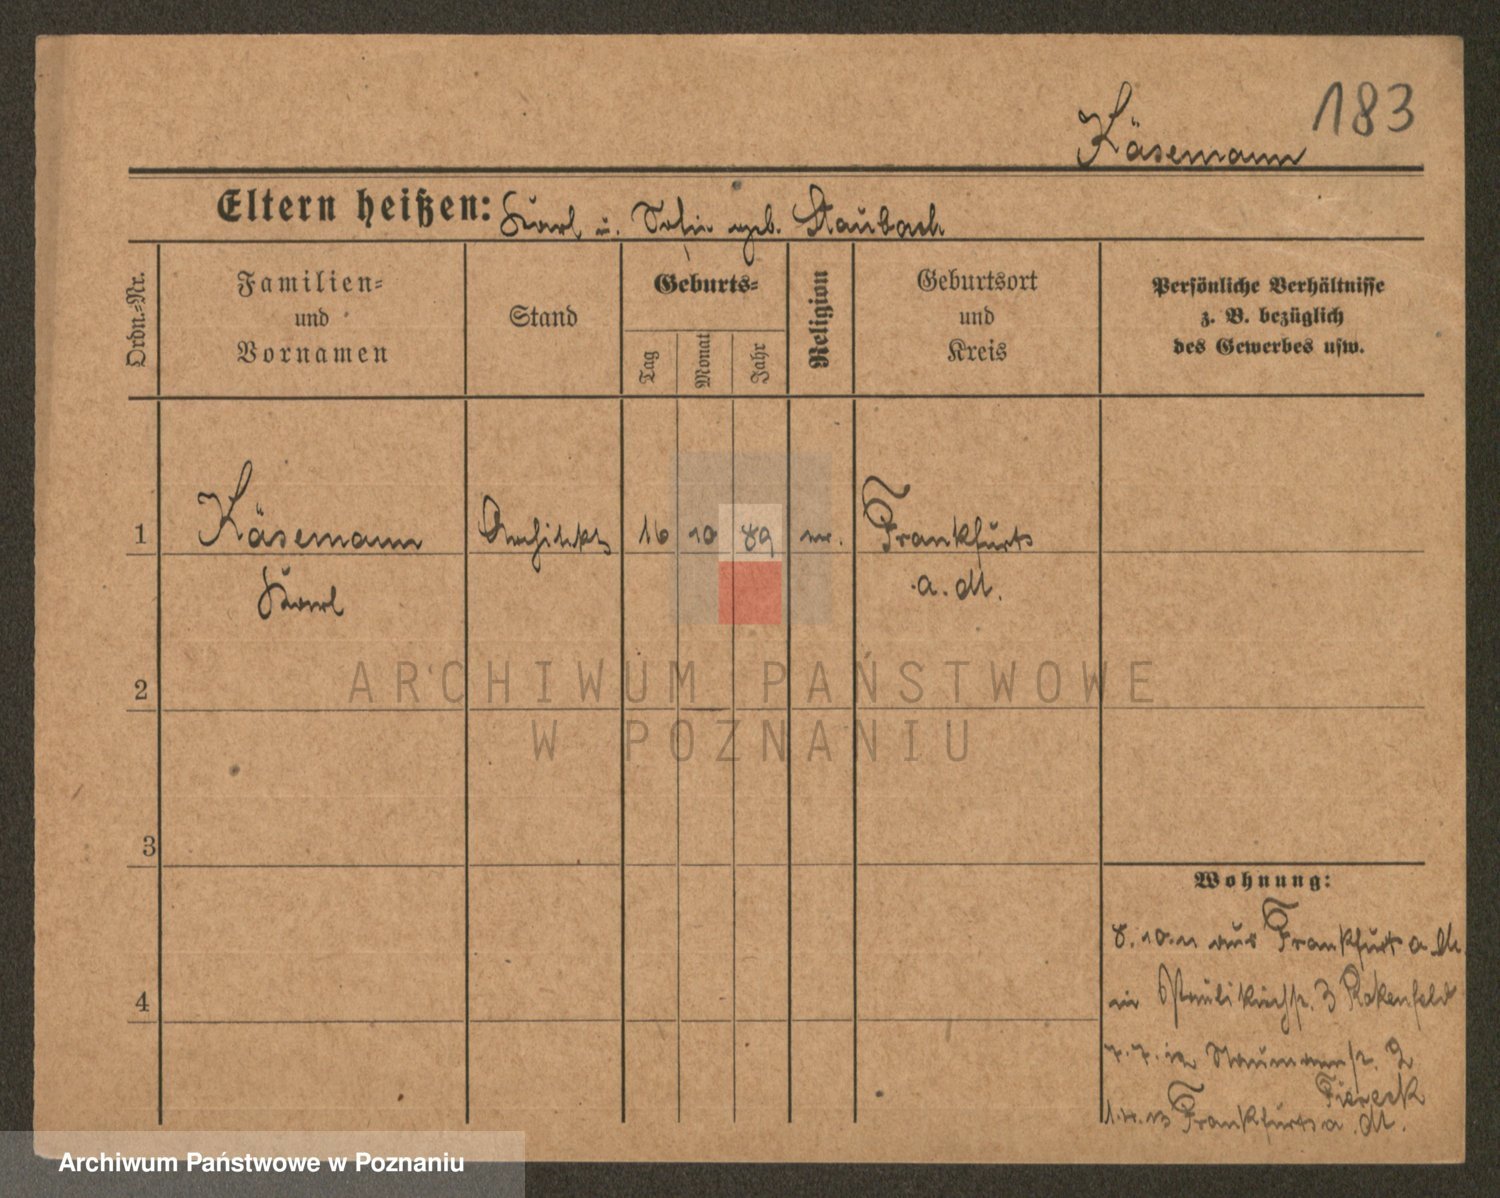 183
Käsemann
Eltern heißen: Karl u. Sofie geb. Staubach
Ordn.-Nr.
Familien-
und
Vornamen
Stand
Geburts-
Tag
Monat
Jahr
Religion
Geburtsort
und
Kreis
Persönliche Verhältnisse
z. B. bezüglich
des Gewerbes usw.
1 Käsemann Architekt 16 10 89 ev. Frankfurt
Karl a. M.
2
3
4
Wohnung:
8. 10. 11 aus Frankfurt a. M.
in Paulikirchstr. 3 Rakenfeld
7. 7. 12 Naumannstr. 2
Fiereck
Frankfurt a. M.
ARCHIWUM PAŃSTWOWE
W POZNANIU
Archiwum Państwowe w Poznaniu